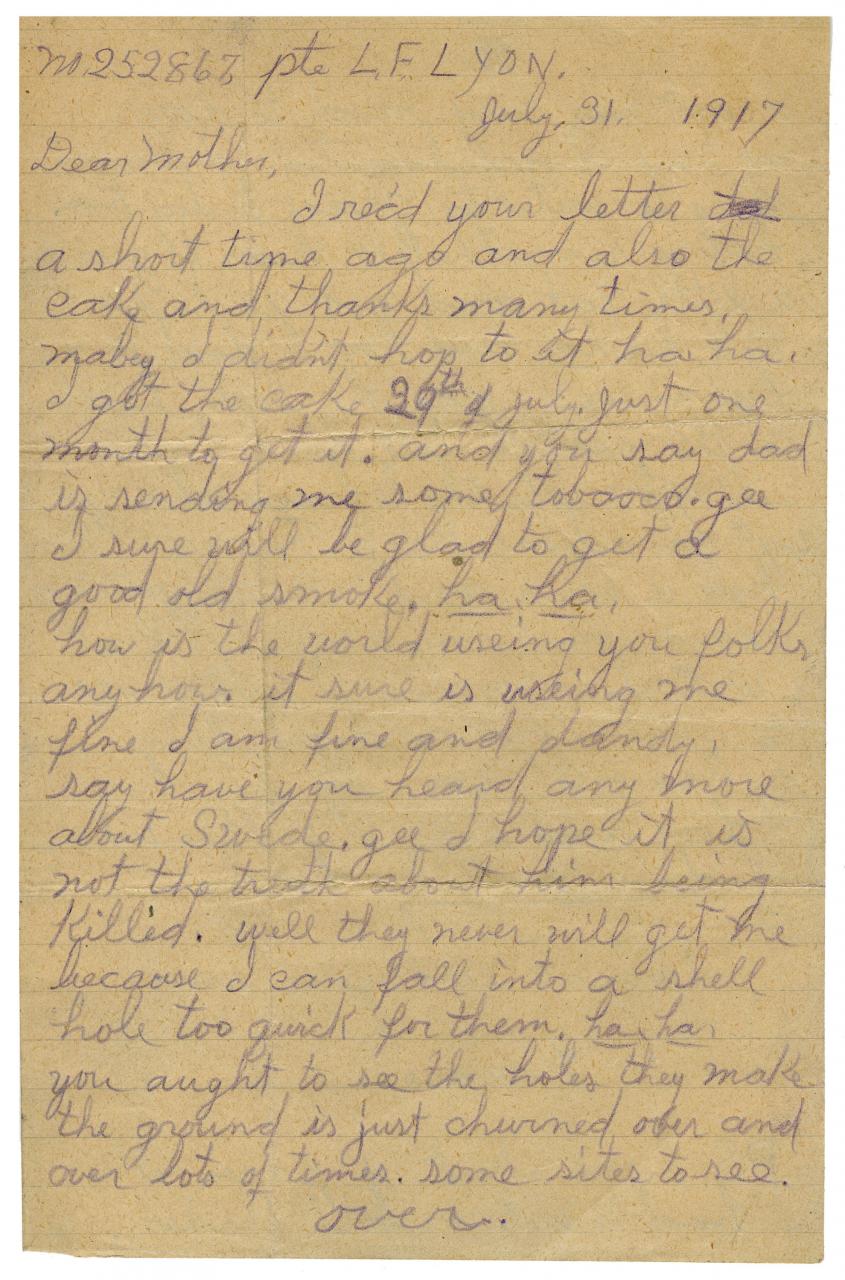 no 252867 pte L.F. LYON.
July, 31. 1917
Dear Mother,
I rec'd your letter
a short time ago and also the
cake and thanks many times,
mabey I didn't hop to it ha ha.
I got the cake 29th of july. just one
month to get it. and you say dad
is sending me some tobacco. gee
I sure will be glad to get a
good old smoke. ha ha,
how is the world useing you folks
anyhow. it sure is useing me
fine I am fine and dandy,
say have you heard any more
about Swede. gee I hope it is
not the truth about him being
Killed. well they never will get me
because I can fall into a shell
hole too quick for them. ha ha,
you aught to see the holes they make
the ground is just churned over and
over lots of times. some sites to see.
over.